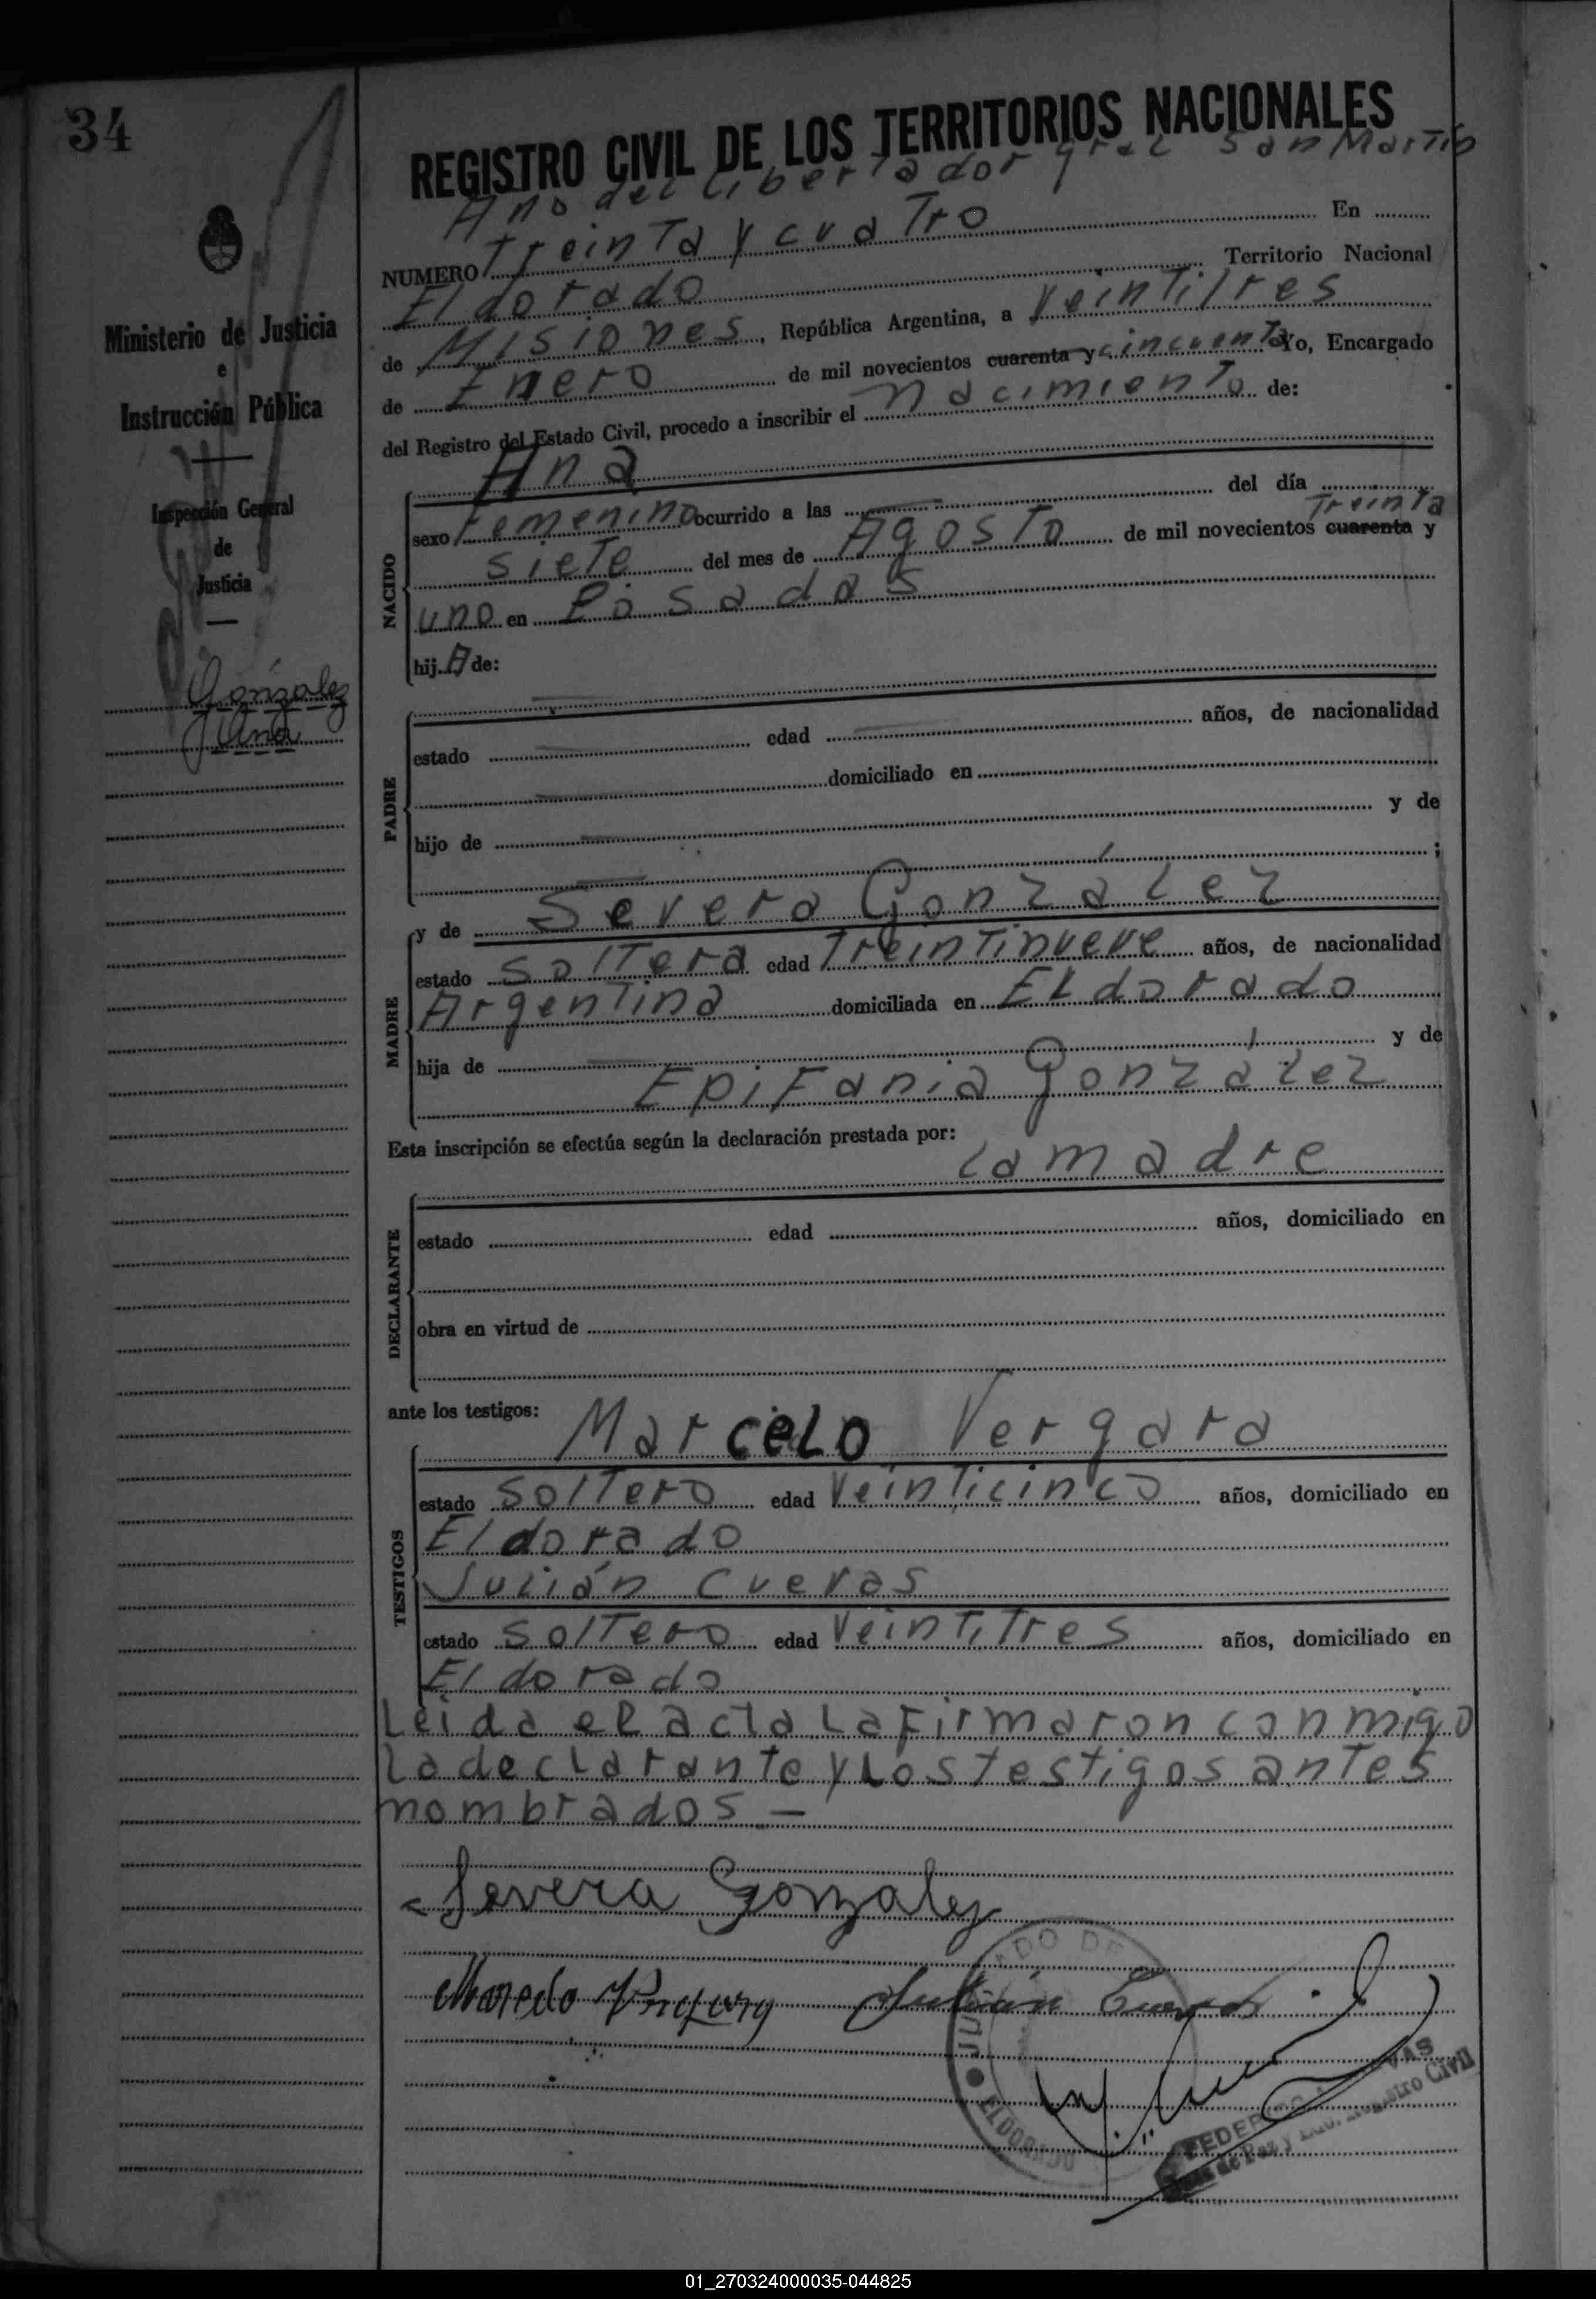 34
REGISTRO CIVIL DE LOS TERRITORIOS NACIONALES
Año del Libertador gral San Martin
NUMERO Treinta y cuatro En
Eldorado Territorio Nacional
de Misiones, República Argentina, a Veintitres
de Enero de mil novecientos cuarenta y cincuenta Yo, Encargado
del Registro del Estado Civil, procedo a inscribir el nacimiento de:
Ministerio de Justicia
e
Instrucción Pública
Inspección General
de
Justicia
González
Ana
NACIDO
Ana
sexo Femenino ocurrido a las del día
Treinta
siete del mes de Agosto de mil novecientos cuarenta y
uno en Posadas
hij A de:
PADRE
estado edad años, de nacionalidad
domiciliado en
hijo de y de
;
MADRE
y de Severa González
estado soltera edad Treintinueve años, de nacionalidad
Argentina domiciliada en Eldorado
hija de y de
Epifania González
Esta inscripción se efectúa según la declaración prestada por:
La madre
DECLARANTE
estado edad años, domiciliado en
obra en virtud de
ante los testigos:
TESTIGOS
Marcelo Vergara
estado soltero edad Veinticinco años, domiciliado en
Eldorado
Julián Cuevas
estado soltero edad Veintitres años, domiciliado en
Eldorado
Leida el acta la firmaron conmigo
la declarante y los testigos antes
nombrados —
Severa Gonzalez
Marcelo Vergara Julián Cuevas
ADO DE
ELDORADO
FEDER VAS
de Paz y Enc. Registro Civil
01_270324000035-044825